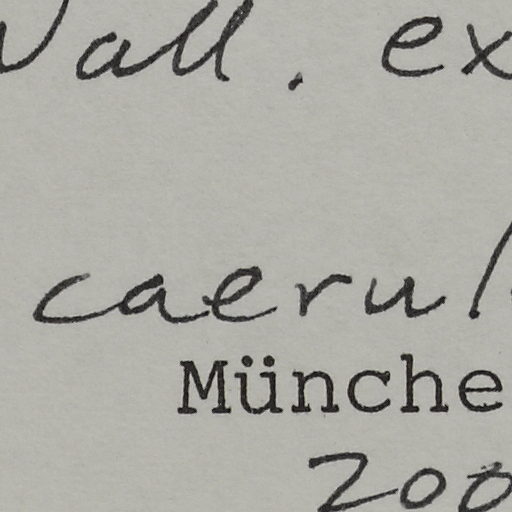 Wall. ex
caerul
Münche
200